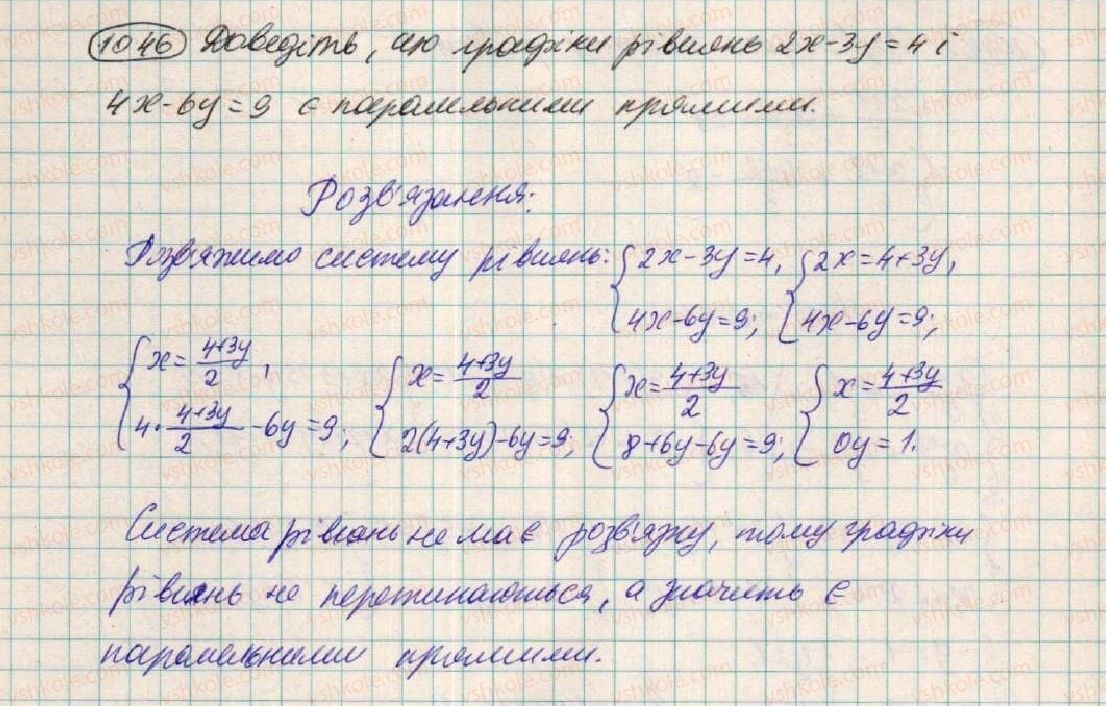 1046 Доведіть, що графіки рівнянь 2x-3y=4 і
4x-6y=9 є паралельними прямими.
Розв'язання:
Розв'яжимо систему рівнянь: { 2x-3y=4, { 2x=4+3y,
4x-6y=9; 4x-6y=9;
{ x=(4+3y)/2, { x=(4+3y)/2 { x=(4+3y)/2 { x=(4+3y)/2
4·(4+3y)/2-6y=9; 2(4+3y)-6y=9; 8+6y-6y=9; 0y=1.
Система рівнянь не має розв'язку, тому графіки
рівнянь не перетинаються, а значить є
паралельними прямими.